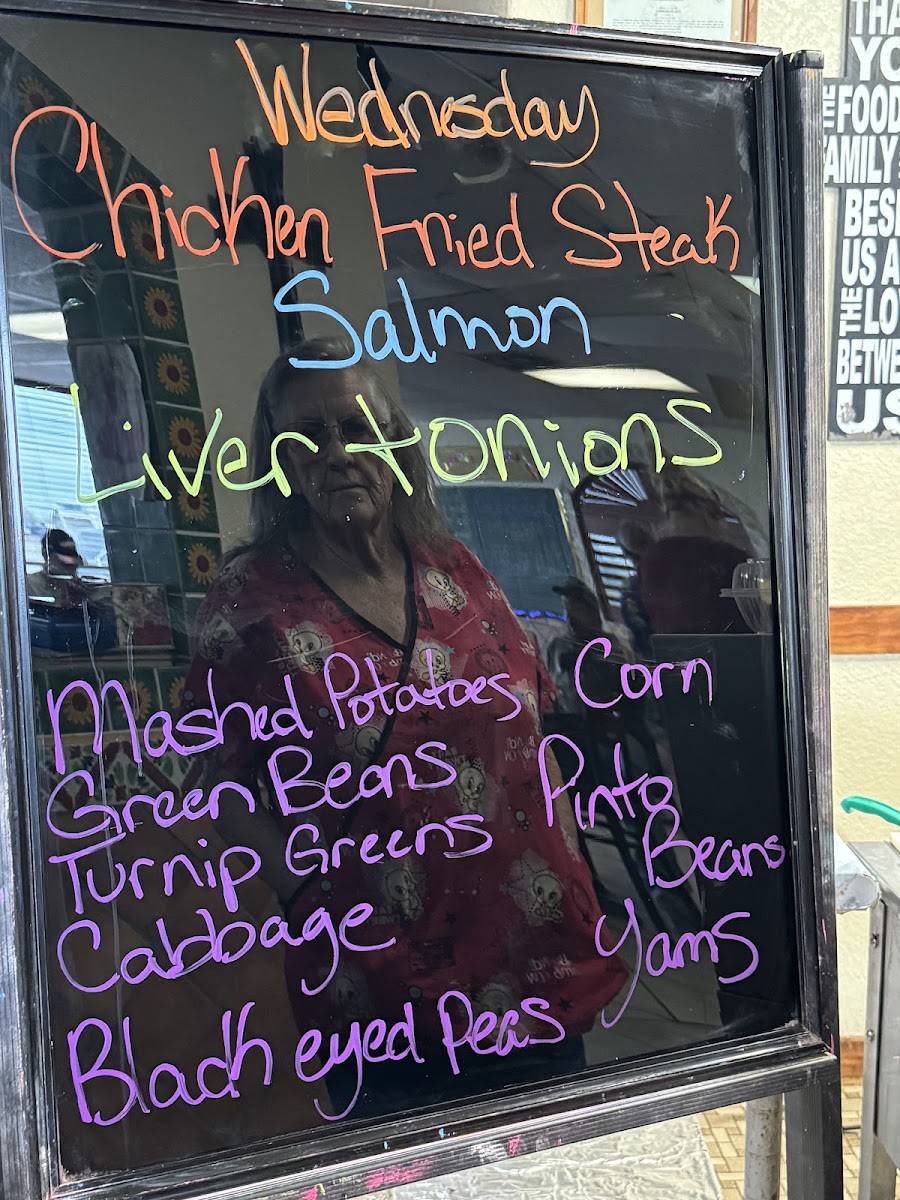 Wednesday
Chicken Fried Steak
Salmon
Liver + onions
Mashed Potatoes Corn
Green Beans Pinto
Beans
Turnip Greens
Cabbage Yams
Black eyed Peas
YO
FOOD
BESI
US A
THE LO
BETWE
US